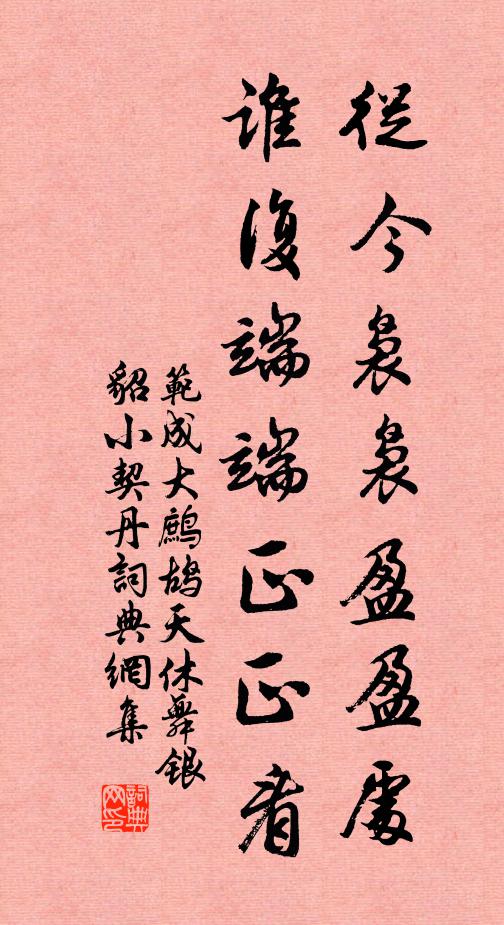 從今裊裊盈盈處
誰復端端正正看
範成大鷓鴣天休舞銀
貂小契丹詞典網集
詞典网印